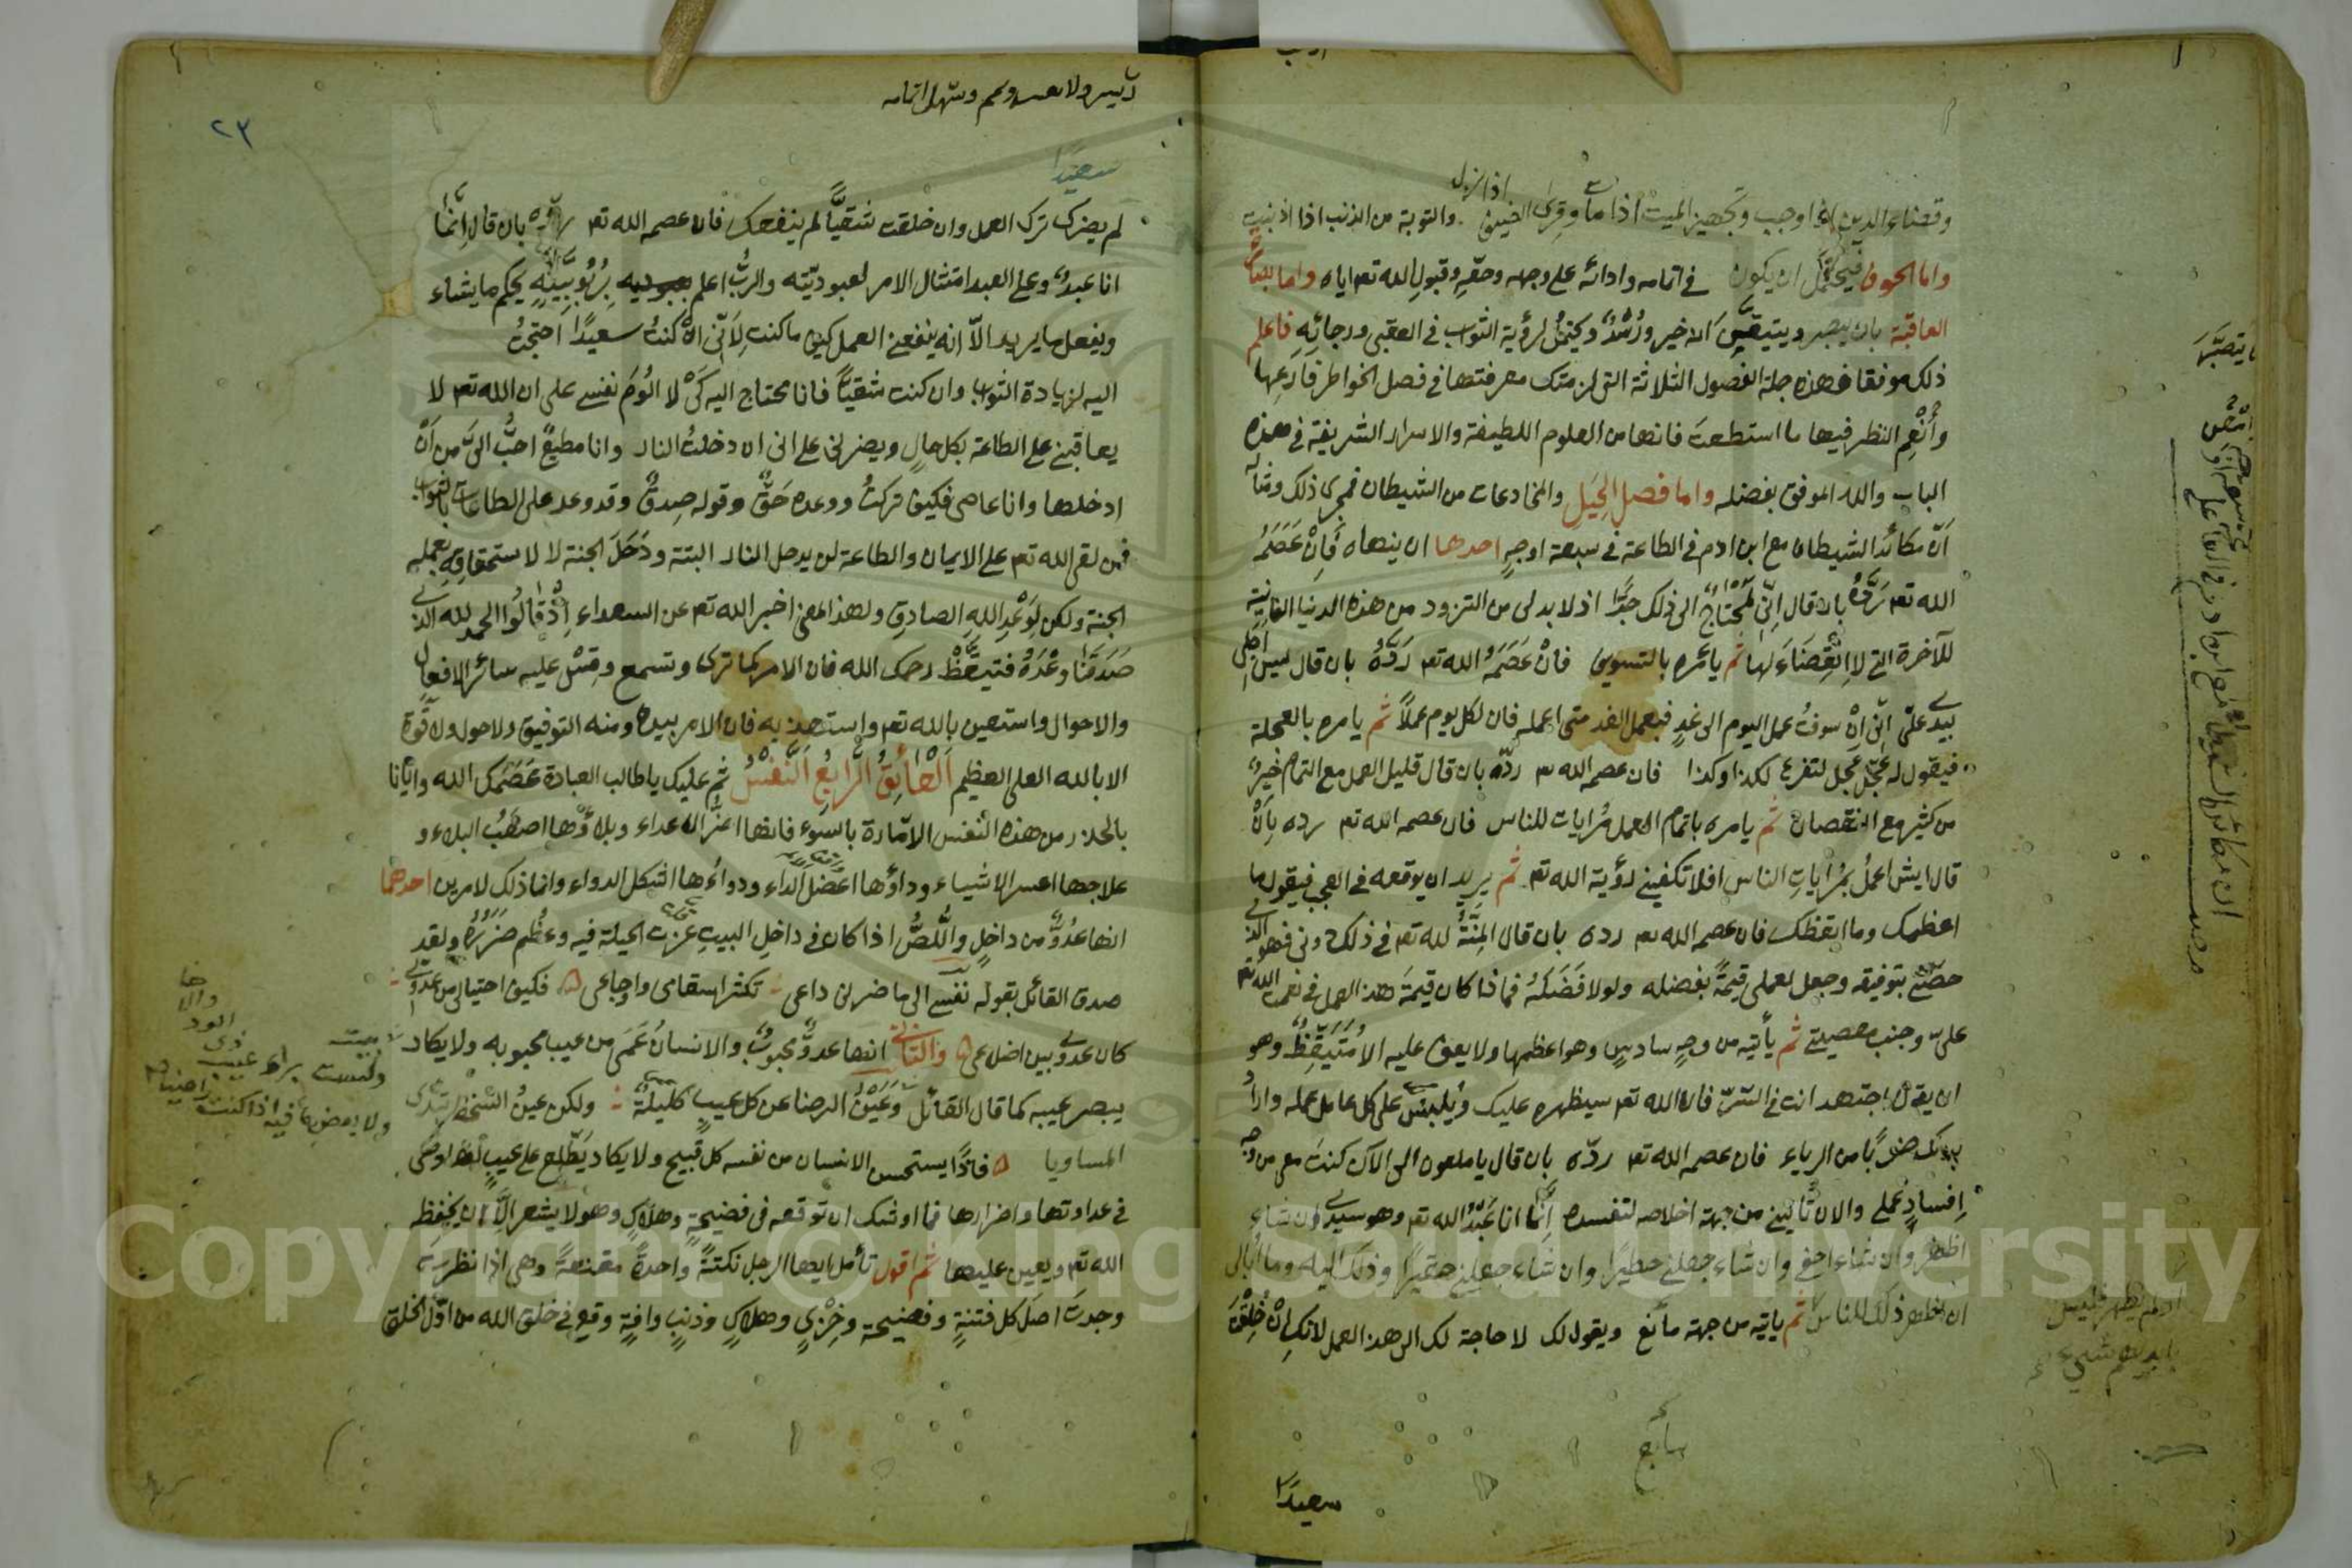 وقضاء الدين اذا وجب وتجهيز الميت اذا مات وقرى الضيف اذا نزل والتوبة من الذنب اذا اذنبت
واما الخوف فيحتمل ان يكون في اتمامه وادائه على وجهه وحقه وقبول الله تعه اياه واما بصارة
العاقبة بان يبصر ويتيقن انه خير ورشد ويحتمل لرؤية الثواب في العقبى ورجائه فاعلم
ذلك موفقا فهذه جملة الفصول الثلاثة التى لزمتك معرفتها في فصل الخواطر فارعها
وأنعم النظر فيها ما استطعت فانها من العلوم اللطيفة والاسرار الشريفة في هذه
الباب والله الموفق بفضله واما فصل الحيل والمخادعات من الشيطان فمجرى ذلك ومثاله
ان مكائد الشيطان مع ابن ادم في الطاعة في سبعة اوجه احدها ان ينهاه فان عصمه
الله تعه رده بان قال انى لمحتاج الى ذلك جدا اذ لا بد لى من التزود من هذه الدنيا الفانية
للآخرة التى لا انقضاء لها ثم يأمره بالتسويف فان عصمه الله تعه رده بان قال ليس اجلى
بيدى على انى ان سوفت عمل اليوم الى غد فعمل الغد متى اعمله فان لكل يوم عملا ثم يامره بالعجلة
فيقول له عجل عجل لتفرغ لكذا وكذا فان عصمه الله تعه رده بان قال قليل العمل مع التمام خير
من كثير مع النقصان ثم يامره باتمام العمل مرايات للناس فان عصمه الله تعه رده بان
قال ايش اعمل بمرايات الناس افلا تكفينى رؤية الله تعه ثم يريد ان يوقعه في العجب فيقول ما
اعظمك وما ايقظك فان عصمه الله تعه رده بان قال المنة لله تعه في ذلك دونى فهو الذى
خصنى بتوفيقه وجعل لعملى قيمة بفضله ولولا فضله فماذا كان قيمة هذا العمل في نعمت الله تعه
على وجنب معصيتى ثم يأتيه من وجه سادس وهو اعظمها ولا يقف عليه الا متيقظ وهو
ان يقول اجتهد انت في السر فان الله تعه سيظهره عليك ويلبس على كل عامل عمله واراد
بذلك ضربا من الرياء فان عصمه الله تعه رده بان قال يا ملعون الى الآن كنت معى من وجه
افساد عملى والان تأتينى من جهة اخلاصه لتفسده انما انا عبد الله تعه وهو سيدى ان شاء
اظهر وان شاء اخفى وان شاء جعلنى خطيرا وان شاء جعلنى حقيرا وذلك اليه وما ابالى
ان اظهر ذلك للناس ثم ياتيه من جهة مانع ويقول لك لا حاجة لك الى هذا العمل لانك ان خلقت
سابع
سعيدا
ربّ يسر ولا تعسر وتمم وسهل اتمامه
٢٣
سعيدا
لم يضرك ترك العمل وان خلقت شقيا لم ينفعك فان عصمه الله تعه رده بان قال انما
انا عبد وعلى العبد امتثال الامر لعبوديته والرب اعلم بربوبيته يحكم ما يشاء
ويفعل ما يريد الا انه ينفعنى العمل كيف ما كنت لانى ان كنت سعيدا احتجت
اليه لزيادة الثواب وان كنت شقيا فانا محتاج اليه كى لا الوم نفسى على ان الله تعه لا
يعاقبنى على الطاعة بكل حال ويضرنى على انى ان دخلت النار وانا مطيع احب الى من ان
ادخلها وانا عاصى فكيف تركت ووعده حق وقوله صدق وقد وعد على الطاعات بالثواب
فمن لقى الله تعه على الايمان والطاعة لن يدخل النار البتة ودخل الجنة لا لاستحقاقه بعمله
الجنة ولكن لوعد الله الصادق ولهذا المعنى اخبر الله تعه عن السعداء اذ قالوا الحمد لله الذى
صدقنا وعده فتيقظ رحمك الله فان الامر كما ترى وتسمع وقس عليه سائر الافعال
والاحوال واستعين بالله تعه واستعذ به فان الامر بيده ومنه التوفيق ولا حول ولا قوة
الا بالله العلى العظيم العائق الرابع النفس ثم عليك يا طالب العبادة عصمك الله وايانا
بالحذر من هذه النفس الامارة بالسوء فانها اضر الاعداء وبلاؤها اصعب البلاء و
علاجها اعسر الاشياء وداؤها اعضل الداء ودواءها اشكل الدواء وانما ذلك لامرين احدهما
انها عدو من داخل واللص اذا كان في داخل البيت عزت الحيلة فيه وعظم ضرره ولقد
صدق القائل بقوله نفسى الى ما ضرنى داعى تكثر اسقامى واوجاعى فكيف احتيالى من عدوى
كان عدوى بين اضلعى والثانى انها عدو محبوب والانسان عمى من عيب محبوبه ولا يكاد
يبصر عيبه كما قال القائل وعين الرضا عن كل عيب كليلة ولكن عين السخط تبدى
المساويا فاذا يستحسن الانسان من نفسه كل قبيح ولا يكاد يطلع على عيب لها وهى
في عداوتها واضرارها فما اوشك ان توقعه في فضيحة وهلاك وهو لا يشعر الا ان يحفظه
الله تعه ويعين عليها ثم اقول تأمل ايها الرجل نكتة واحدة مقنعة وهى اذا نظرت
وجدت اصل كل فتنة وفضيحة وخزى وهلاك وذنب وافة وقع في خلق الله من اول الخلق
ولست براء عيب
ولا بعض ما فيه اذا كنت راضيا